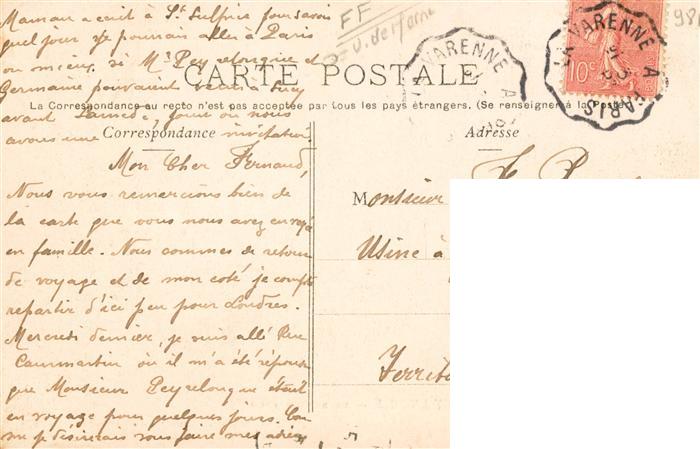 Maman a écrit à St Sulpice pour savoir
quel jour je pourrais aller à Paris
ou mieux si Mr Peyrelongue et
Germaine pouvaient venir à
avant Samedi, dont on nous
avons une invitation.
FF
983
LA VARENNE A PARIS
LA VARENNE A PARIS
10c
CARTE POSTALE
La Correspondance au recto n'est pas acceptée par tous les pays étrangers. (Se renseigner à la Poste)
Correspondance
Adresse
Mon Cher Fernand,
Nous vous remercions bien de
la carte que vous nous avez envoyé
en famille. Nous sommes de retour
de voyage et de mon coté je compte
repartir d'ici peu pour Londres.
Mercredi dernier, je suis allé Rue
Caumartin où il m'a été répondu
que Monsieur Peyrelongue était
en voyage pour quelques jours. Com
me je désirerais vous faire mes adieux
Monsieur
Usine à
Territo